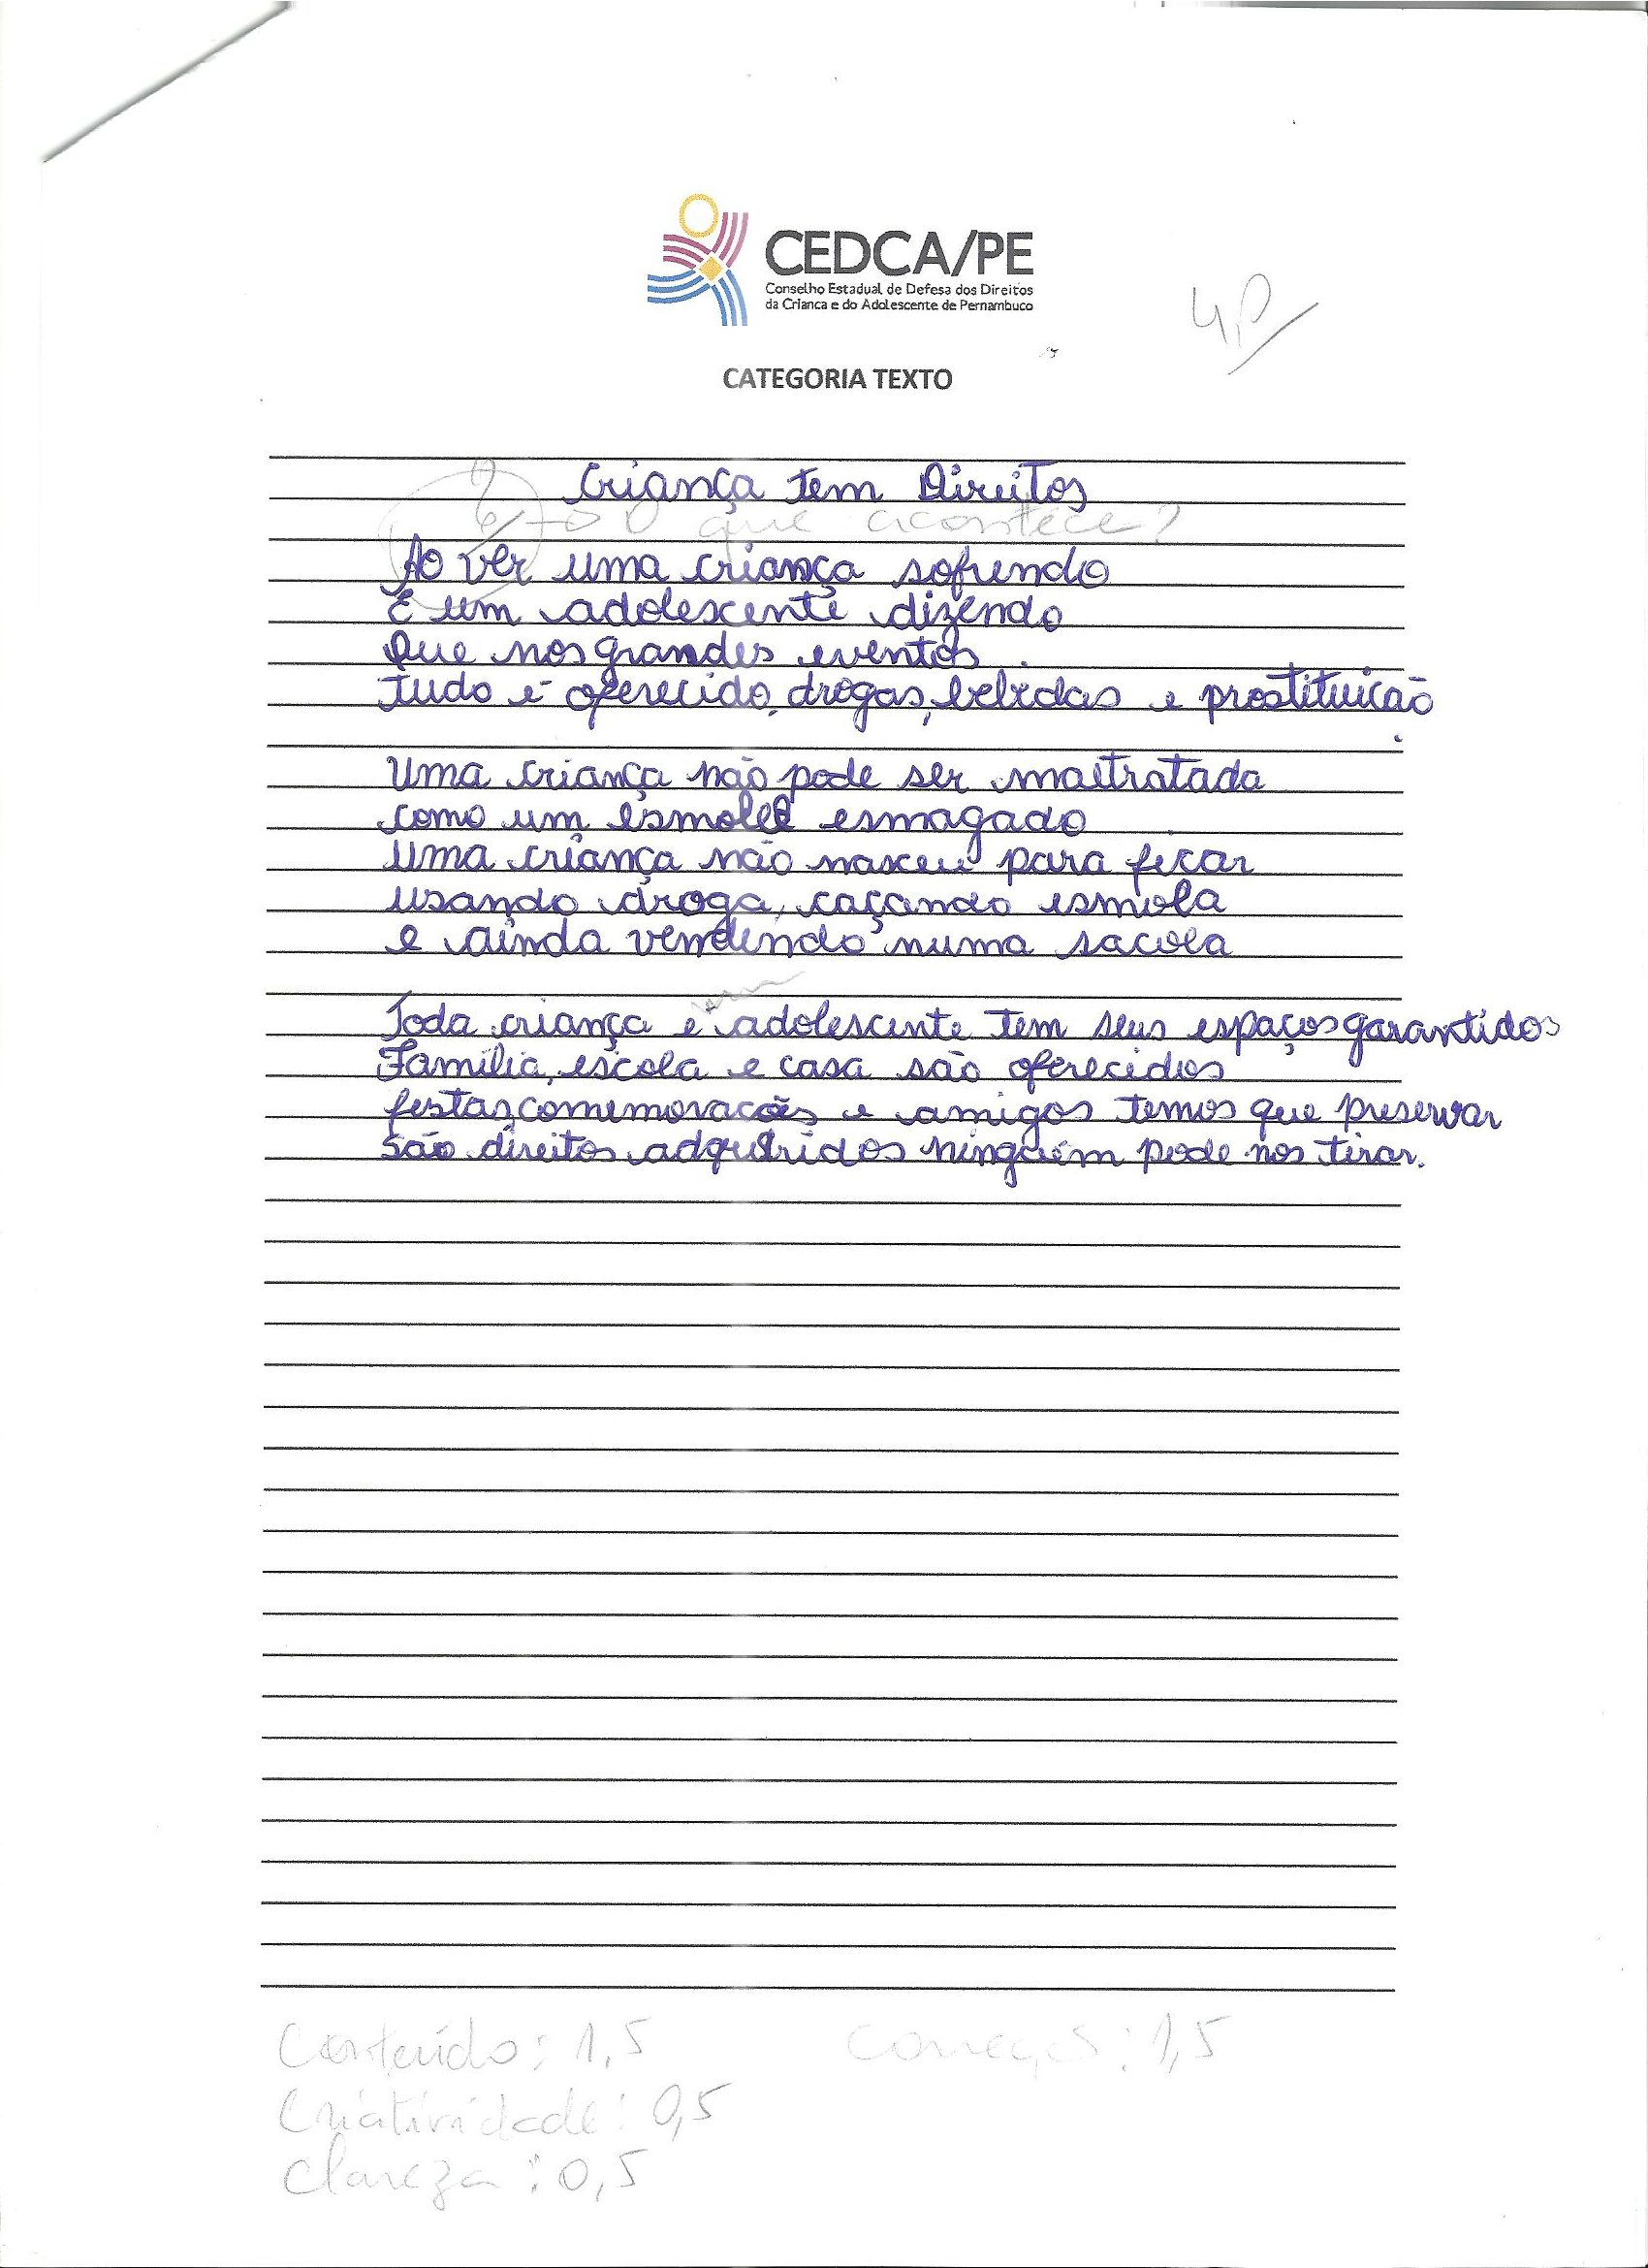 CEDCA/PE
Conselho Estadual de Defesa dos Direitos
da Crianca e do Adolescente de Pernambuco
4,0
CATEGORIA TEXTO
Criança tem Direitos
? → O que acontece?
Ao ver uma criança sofrendo
E um adolescente dizendo
Que nos grandes eventos
tudo é oferecido, drogas, bebidas e prostituição.
Uma criança não pode ser maltratada
como um esmolé esmagado
Uma criança não nasceu para ficar
usando droga, caçando esmola
e ainda vendendo numa sacola
Toda criança e adolescente tem seus espaços garantidos
Família, escola e casa são oferecidos
festas, comemoracões e amigos temos que preservar
são direitos adquiridos ninguém pode nos tirar.
Conteúdo: 1,5 Coneção: 1,5
Criatividade: 0,5
Clareza: 0,5